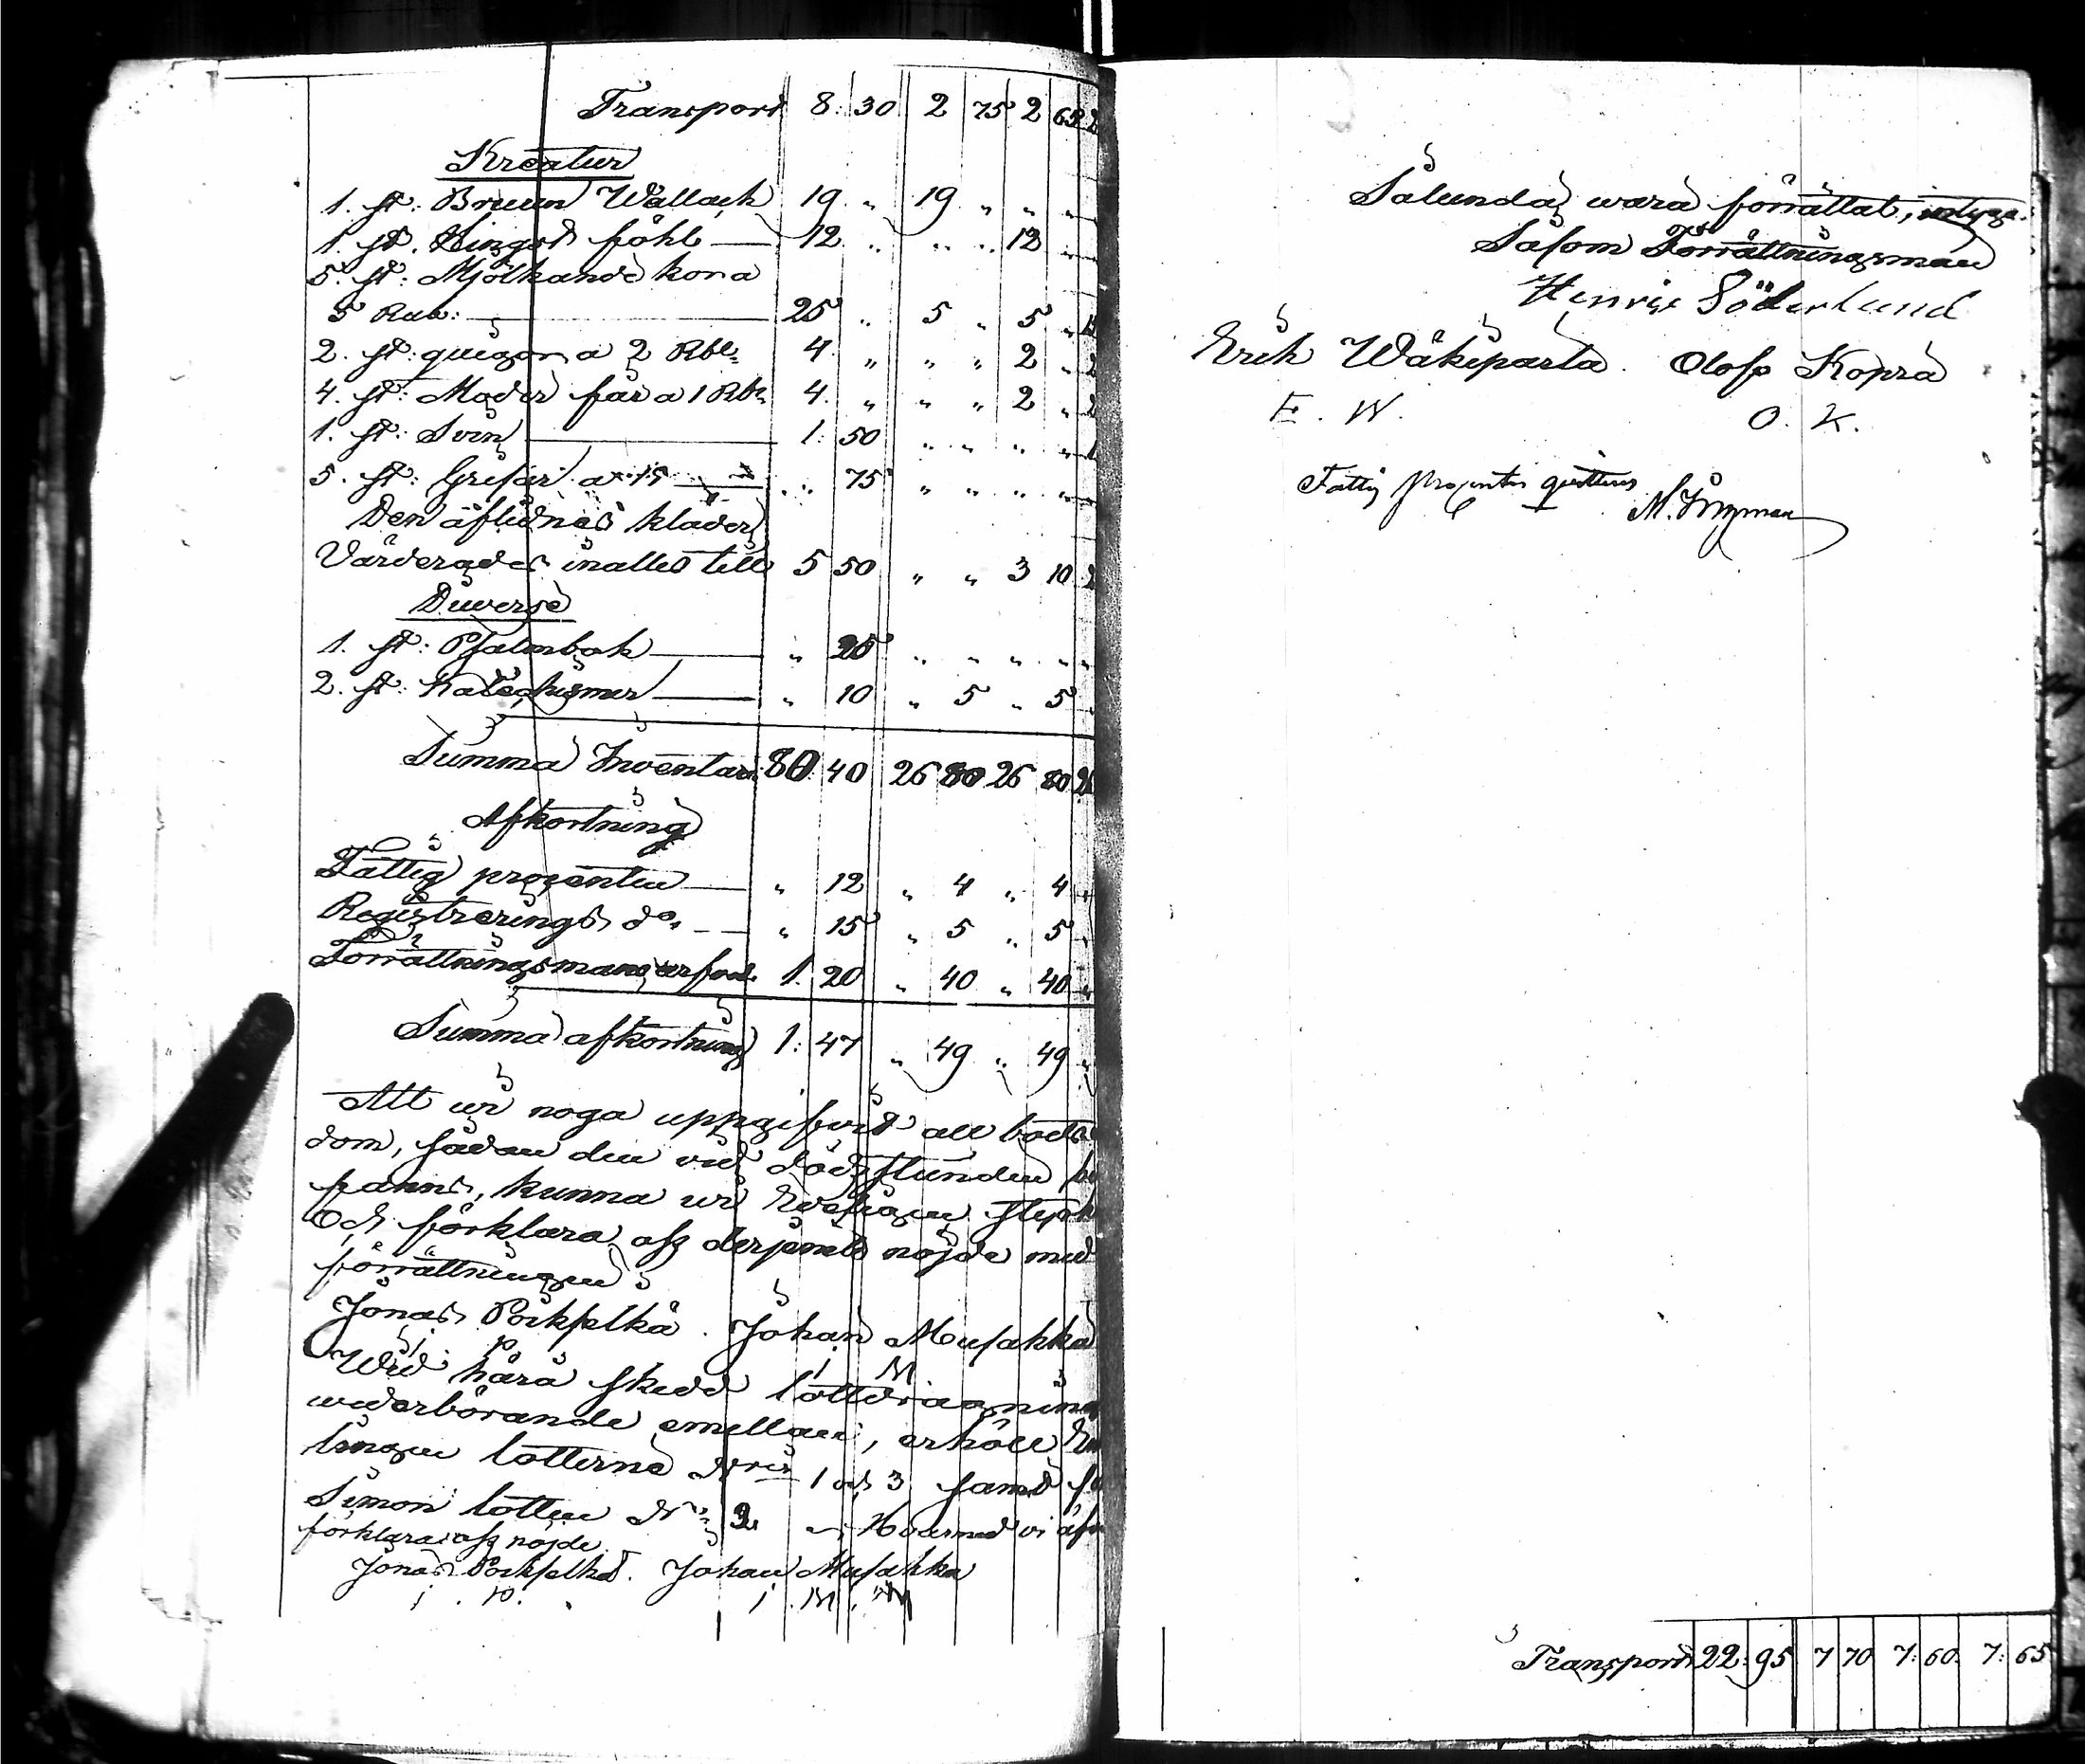 Transport 8: 30 2 75 2 65
Kreatur
1. st: Bruun Wallack 19 " 19 " " "
1. st. Hingst föhl 12 " " " 12 "
5. st: Mjölkande kor a
5 Rub: 25 " 5 " 5 "
2. st: quigor a 2 Rbl 4 " " " 2 "
4. st: Moder får a 1 Rbl 4. " " " 2 "
1. st: Svin 1: 50 " " " "
5. st: Grisar a 15 " 75 " " " "
Den aflidnes kläder
Värderades inalles till 5 50 " " 3 10
Diverse
1. st: Psalmbok " 25 " " " "
2. st: Kateghismer " 10 " 5 " 5
Summa Inventari 80: 40 26 80 26 80
Afkortning
Fattig procenten " 12 " 4 " 4
Registrerings do " 15 " 5 " 5
Förrättningsmans arfvode 1. 20 " 40 " 40
Summa afkortning 1: 47 " 49 " 49
Att wi noga uppgifvit all
dom, sådan den vid dödsstunden
fanns, kunna wi
Och förklara oss derjemte nöjde med
förrättningen
Jonas Poikselkä. Johan Musakka
j. P. j M
Wid härå skedd lottdragning
wederbörande emellan, erhöll
lingen lotterne Nris 1 och 3 samt
Simon lotten No 2 Hvarmed vi
förklara oss nöjde.
Jonas Poikselkä. Johan Musakka
j. P. j. M.
Sålunda wara förrättat, intyga.
Såsom Förrättningsman
Henric Söderlund
Erik Wäkiparta. Olof Kopra
E. W. O. K.
Fattig procenten quitteras
Transport 22: 95 7 70 7: 60 7: 65